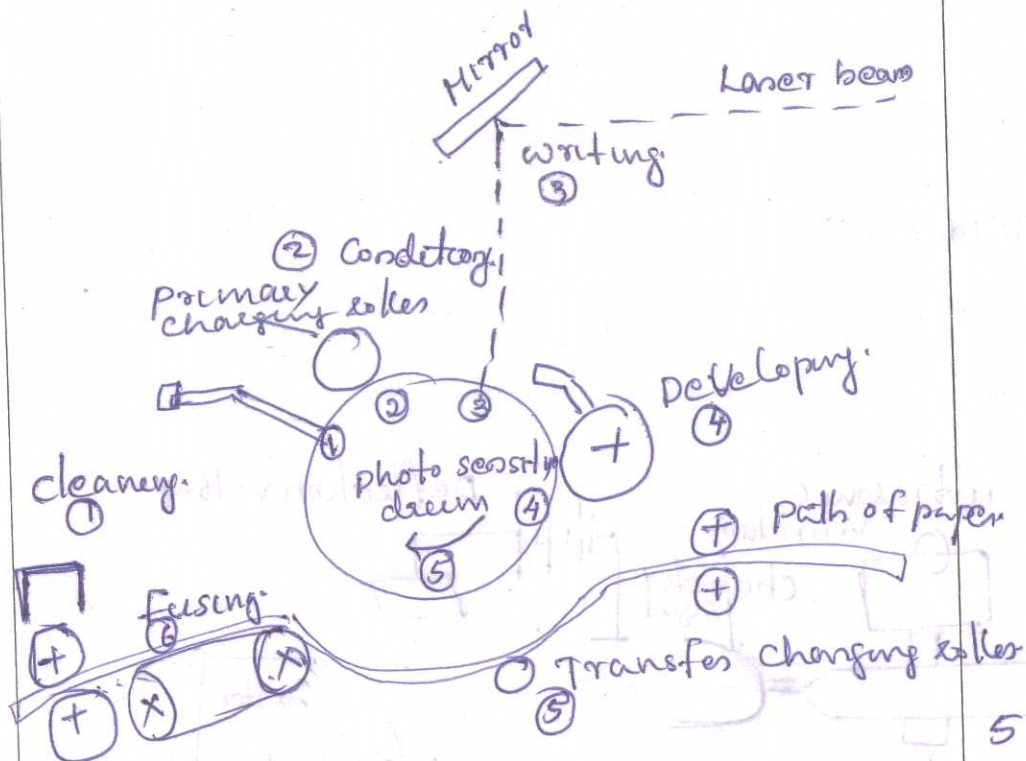 Mirror
Laser beam
writing.
③
② Condetcong.
Primary
charging roller
Developing.
④
② ③
①
photo sensitive
drum ④
⑤
cleaneng.
①
Path of paper
Fusing.
⑥
Transfer changing roller
⑤
5